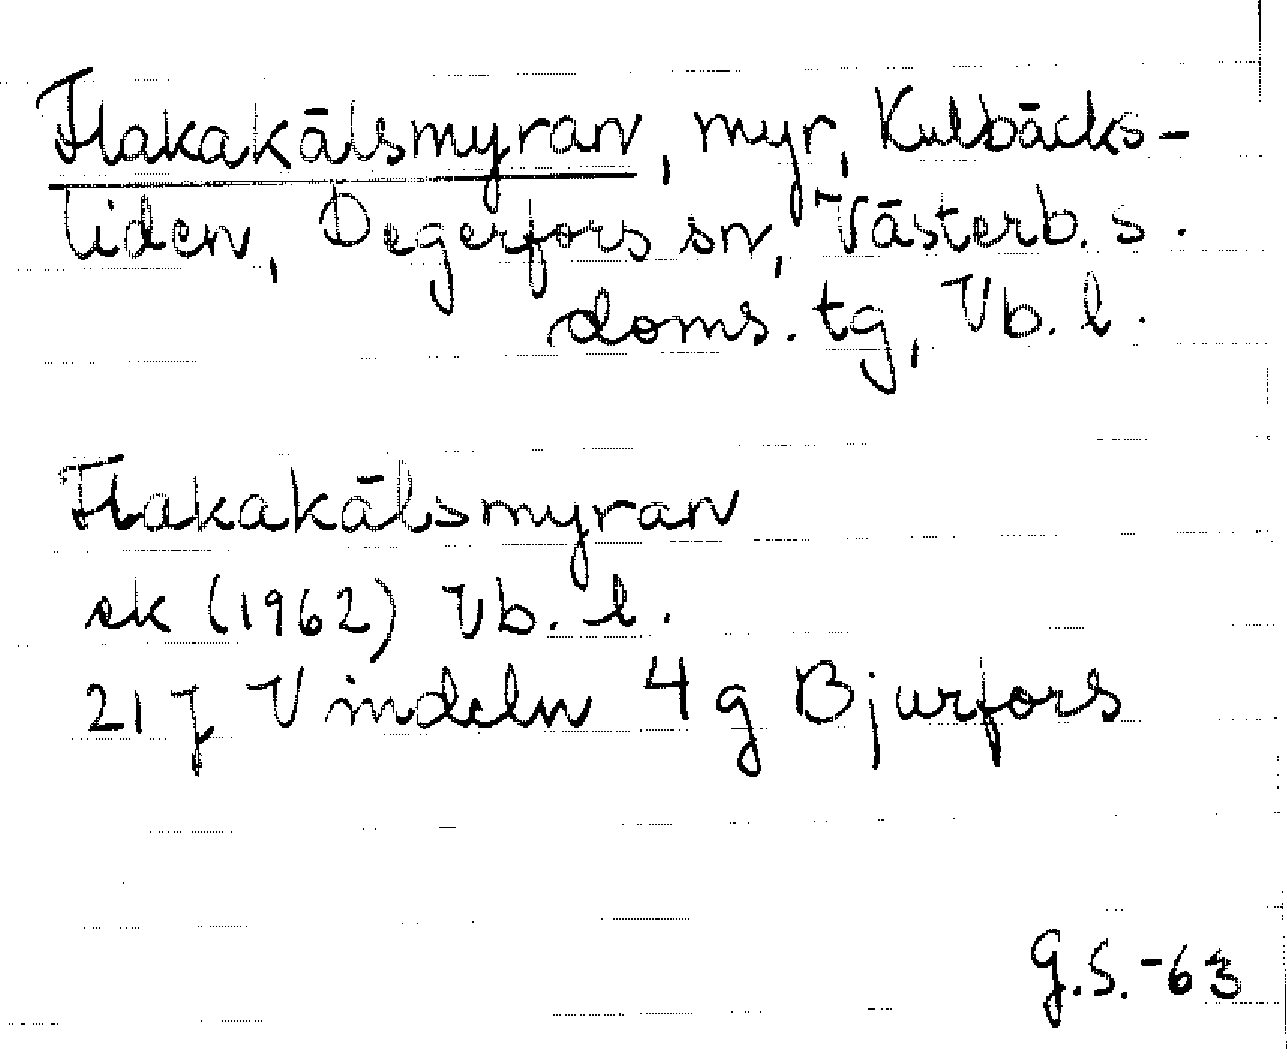 Flakakälsmyran, myr, Kulbäcks-
liden, Degerfors sn, Västerb. s.
doms. tg, Vb. l.
Flakakälsmyran
ek (1962) Vb. l.
21 J Vindeln 4 g Bjurfors
G.S. -63